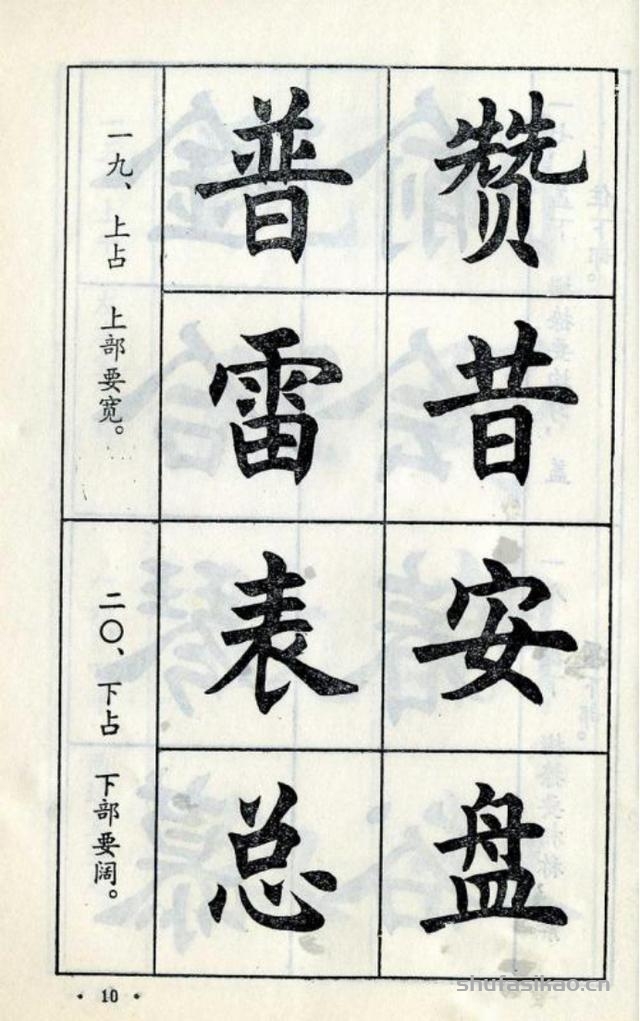 一九、上占 上部要宽。
赞 普
昔 雷
二〇、下占 下部要阔。
安 表
盘 总
· 10 ·
shufasikao.cn